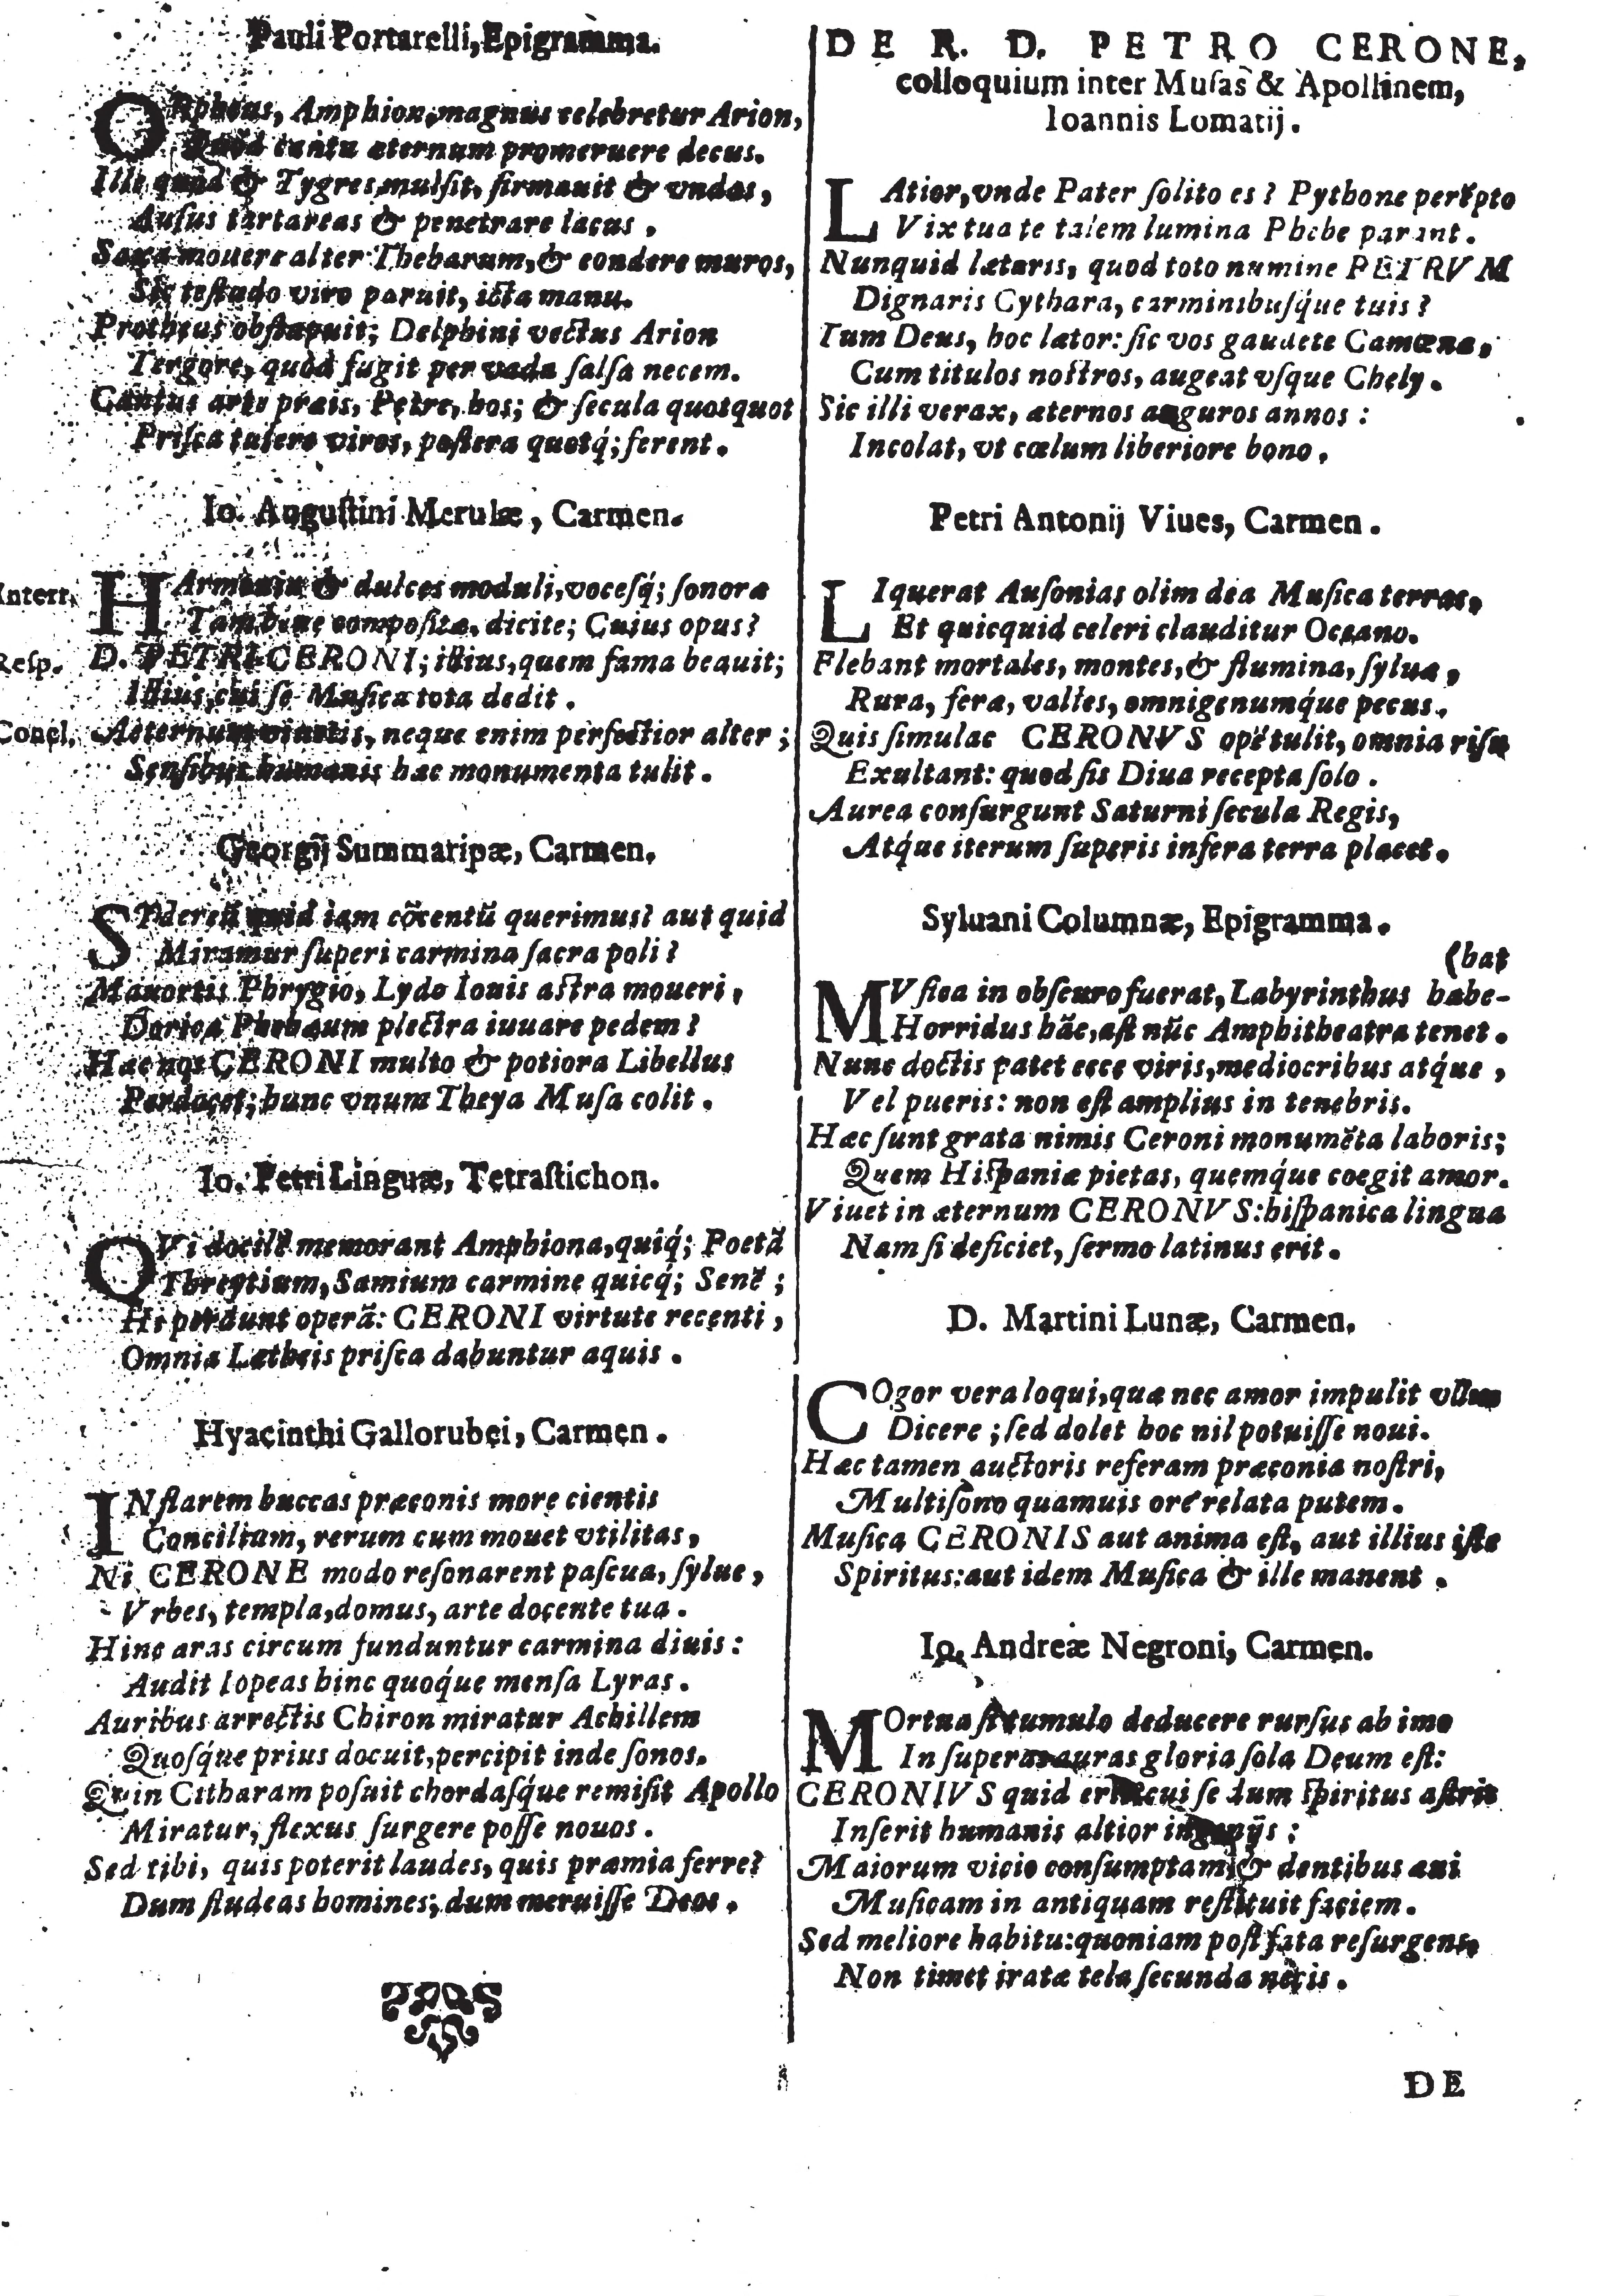 Pauli Portarelli, Epigramma.
ORpheus, Amphion, magnus celebretur Arion,
Quòd cantu æternum promeruere decus.
Ille quòd & Tygres, mulſit, firmauit & vndas,
Auſus tartareas & penetrare lacus.
Saxa mouere alter Thebarum, & condere muros,
Sic teſtudo viro paruit, icta manu.
Protheus obſtupuit; Delphini vectus Arion
Tergore, quòd fugit per vada ſalſa necem.
Cantus arte præis, Petre, hos; & ſecula quotquot
Priſca tulere viros, poſtera quotq́; ferent.
Io. Auguſtini Merulæ, Carmen.
Interr. HArmonia & dulces moduli, voceſq́; ſonoræ
Tam bene compoſitæ, dicite; Cuius opus?
Reſp. D. PETRI CERONI; illius, quem fama beauit;
Illius, cui ſe Muſica tota dedit.
Concl. Aeternum viuetis, neque enim perfectior alter;
Senſibus humanis hæc monumenta tulit.
Georgij Summaripæ, Carmen.
SYdereũ quid iam cõcentũ querimus? aut quid
Miramur ſuperi carmina ſacra poli?
Mauortis Phrygio, Lydo Iouis aſtra moueri,
Dorica Phebæum plectra iuuare pedem?
Hæc nos CERONI multo & potiora Libellus
Perdocet; hunc vnum Theya Muſa colit.
Io. Petri Linguæ, Tetraſtichon.
QVi docilẽ memorant Amphiona, quiq́; Poetã
Threytium, Samium carmine quicq́; Senẽ;
Hi perdunt operã: CERONI virtute recenti,
Omnia Lætheis priſca dabuntur aquis.
Hyacinthi Gallorubei, Carmen.
INflarem buccas præconis more cientis
Concilium, rerum cum mouet vtilitas,
Ni CERONE modo reſonarent paſcua, ſylue,
Vrbes, templa, domus, arte docente tua.
Hinc aras circum funduntur carmina diuis:
Audit Iopeas hinc quoq́ue menſa Lyras.
Auribus arrectis Chiron miratur Achillem
Quoſq́ue prius docuit, percipit inde ſonos.
Quin Citharam poſuit chordaſq́ue remiſit Apollo
Miratur, flexus ſurgere poſſe nouos.
Sed tibi, quis poterit laudes, quis præmia ferre?
Dum ſtudeas homines; dum meruiſſe Deos.
DE R. D. PETRO CERONE,
colloquium inter Muſas & Apollinem,
Ioannis Lomatij.
LAtior, vnde Pater ſolito es? Pythone perẽpto
Vix tua te talem lumina Phebe parant.
Nunquid lætaris, quod toto numine PETRVM
Dignaris Cythara, carminibuſq́ue tuis?
Tum Deus, hoc lætor: ſic vos gaudete Camœnæ,
Cum titulos noſtros, augeat vſque Chely.
Sic illi verax, æternos auguros annos:
Incolat, vt cœlum liberiore bono.
Petri Antonij Viues, Carmen.
LIquerat Auſonias olim dea Muſica terras,
Et quicquid celeri clauditur Oceano.
Flebant mortales, montes, & flumina, ſyluæ,
Rura, feræ, valles, omnigenumq́ue pecus.
Quis ſimulac CERONVS opẽ tulit, omnia riſu
Exultant: quod ſis Diua recepta ſolo.
Aurea conſurgunt Saturni ſecula Regis,
Atq́ue iterum ſuperis infera terra placet.
Syluani Columnæ, Epigramma.
(bat
MVſica in obſcuro fuerat, Labyrinthus habe-
Horridus hãc, aſt nũc Amphitheatra tenet.
Nunc doctis patet ecce viris, mediocribus atq́ue,
Vel pueris: non eſt amplius in tenebris.
Hæc ſunt grata nimis Ceroni monumẽta laboris;
Quem Hiſpaniæ pietas, quemq́ue coegit amor.
Viuet in æternum CERONVS: hiſpanica lingua
Nam ſi deficiet, ſermo latinus erit.
D. Martini Lunæ, Carmen.
COgor vera loqui, quæ nec amor impulit vllum
Dicere; ſed dolet hoc nil potuiſſe noui.
Hæc tamen auctoris referam præconia noſtri,
Multiſono quamuis ore relata putem.
Muſica CERONIS aut anima eſt, aut illius iſte
Spiritus: aut idem Muſica & ille manent.
Io. Andreæ Negroni, Carmen.
MOrtua ſi tumulo deducere rurſus ab imo
In ſuperas auras gloria ſola Deum eſt:
CERONIVS quid erit cui ſe dum ſpiritus aſtris
Inſerit humanis altior ingenijs:
Maiorum vicio conſumptam & dentibus æui
Muſicam in antiquam reſtituit faciem.
Sed meliore habitu: quoniam poſt fata reſurgens,
Non timet iratæ tela ſecunda necis.
DE